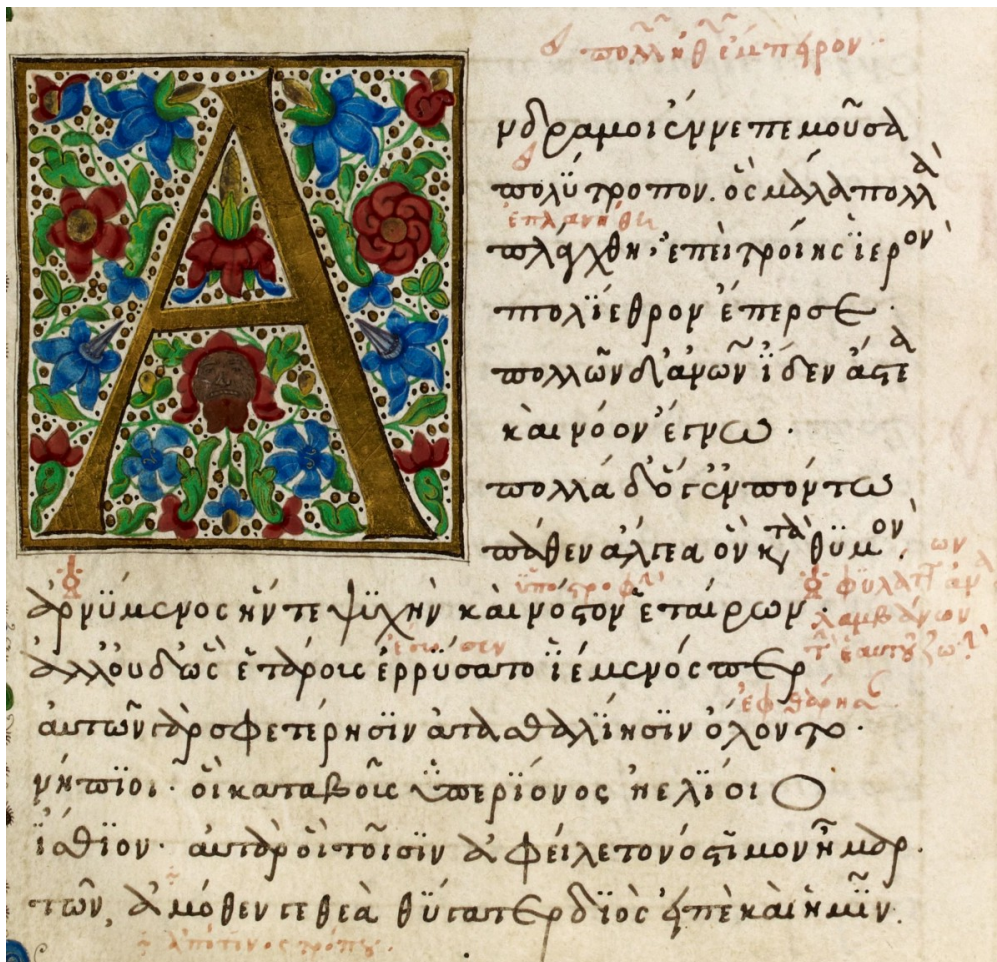 Α
νδρα μοι ἔννεπε μοῦσα
πολΰτροπον. ὃς μάλα πολλὰ
ἐπλανήθη
πλάγχθη, ἐπεὶ τροίης ϊερὸν
πτολΐεθρον ἔπερσε·
πολλῶν δ' ἀνῶν ἴδεν ἄστεα
καὶ νόον ἔγνω·
πολλὰ δ' ὅγ' ἐν πόντω
πάθεν ἄλγεα ὃν κατὰ θΰμὸν,
ἀρνΰμενος ἥν τε ψΰχὴν καὶ νόστον ἑταίρων·
ἔσωσεν
ἀλλ' οὐδ' ὣς ἑτάρους ἐρρΰσατο ϊέμενός περ
αὐτῶν γὰρ σφετέρησϊν ἀτασθαλΐησϊν ὄλοντο·
νήπϊοι· οἳ κατὰ βοῦς ὑπερΐονος ἠελΐοιο
ἤσθϊον· αὐτὰρ ὃ τοῖσϊν ἀφείλετο νόστϊμον ἦμαρ.
τῶν, ἁμόθεν γε θεὰ θΰγατερ δϊὸς εἰπὲ καὶ ἡμῖν.
ἀπό τινος τρόπου.